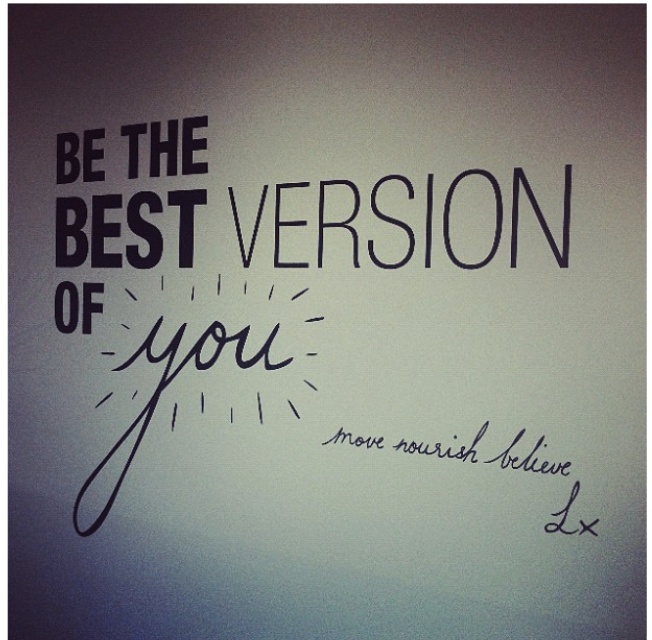 BE THE
BEST VERSION
OF you
move nourish believe
Lx